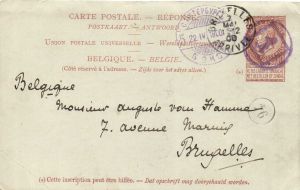 CARTE POSTALE. - RÉPONSE.
POSTKAART. - ANTWOORD
UNION POSTALE UNIVERSELLE -
BELGIQUE. - BELGIË.
(Côté réservé à l'adresse. - Zijde voor het adres alleen.)
Belgique
Monsieur Auguste van
7, avenue
Bruxelles
(a) Cette inscription peut être biffée. - Dat opschrift mag doorgehaald worden.